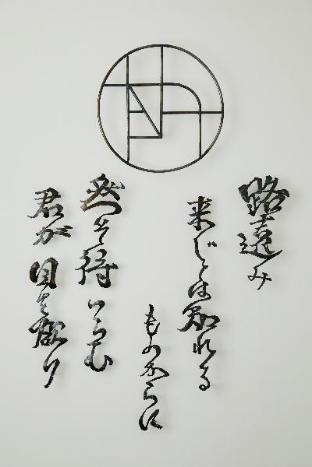 路遠み
来じとは知れる
ものからに
然そ待つらむ
君が目を欲り